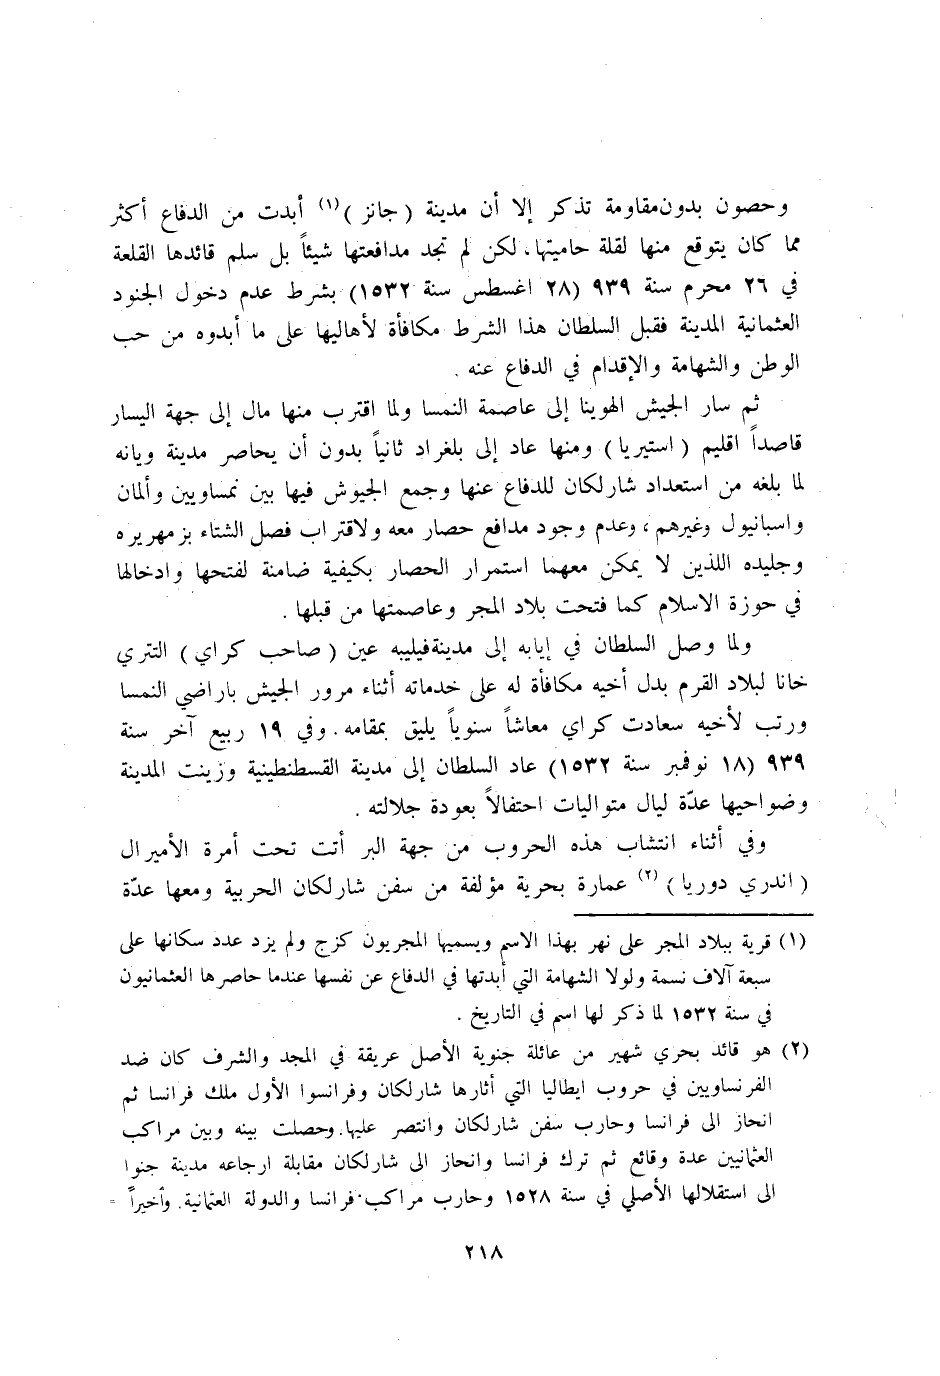 وحصون بدون مقاومة تذكر إلا أن مدينة (جانز)(١) أبدت من الدفاع أكثر
مما كان يتوقع منها لقلة حاميتها. لكن لم تجد مدافعتها شيئاً بل سلم قائدها القلعة
في ٢٦ محرم سنة ٩٣٩ (٢٨ اغسطس سنة ١٥٣٢) بشرط عدم دخول الجنود
العثمانية المدينة فقبل السلطان هذا الشرط مكافأة لأهاليها على ما أبدوه من حب
الوطن والشهامة والإقدام في الدفاع عنه .
ثم سار الجيش الهوينا إلى عاصمة النمسا ولما اقترب منها مال إلى جهة اليسار
قاصداً اقليم (استيريا) ومنها عاد إلى بلغراد ثانياً بدون أن يحاصر مدينة ويانه
لما بلغه من استعداد شارلكان للدفاع عنها وجمع الجيوش فيها بين نمساويين وألمان
واسبانيول وغيرهم، وعدم وجود مدافع حصار معه ولاقتراب فصل الشتاء بزمهريره
وجليده اللذين لا يمكن معهما استمرار الحصار بكيفية ضامنة لفتحها وادخالها
في حوزة الاسلام كما فتحت بلاد المجر وعاصمتها من قبلها .
ولما وصل السلطان في إيابه إلى مدينة فيليبه عين (صاحب كراي) التتري
خانا لبلاد القرم بدل أخيه مكافأة له على خدماته أثناء مرور الجيش باراضي النمسا
ورتب لأخيه سعادت كراي معاشاً سنوياً يليق بمقامه. وفي ١٩ ربيع آخر سنة
٩٣٩ (١٨ نوفمبر سنة ١٥٣٢) عاد السلطان إلى مدينة القسطنطينية وزينت المدينة
وضواحيها عدّة ليال متواليات احتفالاً بعودة جلالته .
وفي أثناء انتشاب هذه الحروب من جهة البر أتت تحت أمرة الأميرال
(اندري دوريا)(٢) عمارة بحرية مؤلفة من سفن شارلكان الحربية ومعها عدّة
(١) قرية ببلاد المجر على نهر بهذا الاسم ويسميها المجريون كزج ولم يزد عدد سكانها على
سبعة آلاف نسمة ولولا الشهامة التي أبدتها في الدفاع عن نفسها عندما حاصرها العثمانيون
في سنة ١٥٣٢ لما ذكر لها اسم في التاريخ .
(٢) هو قائد بحري شهير من عائلة جنوية الأصل عريقة في المجد والشرف كان ضد
الفرنساويين في حروب ايطاليا التي أثارها شارلكان وفرانسوا الأول ملك فرانسا ثم
انحاز الى فرانسا وحارب سفن شارلكان وانتصر عليها. وحصلت بينه وبين مراكب
العثمانيين عدة وقائع ثم ترك فرانسا وانحاز الى شارلكان مقابلة ارجاعه مدينة جنوا
الى استقلالها الأصلي في سنة ١٥٢٨ وحارب مراكب فرانسا والدولة العثمانية. وأخيراً =
٢١٨